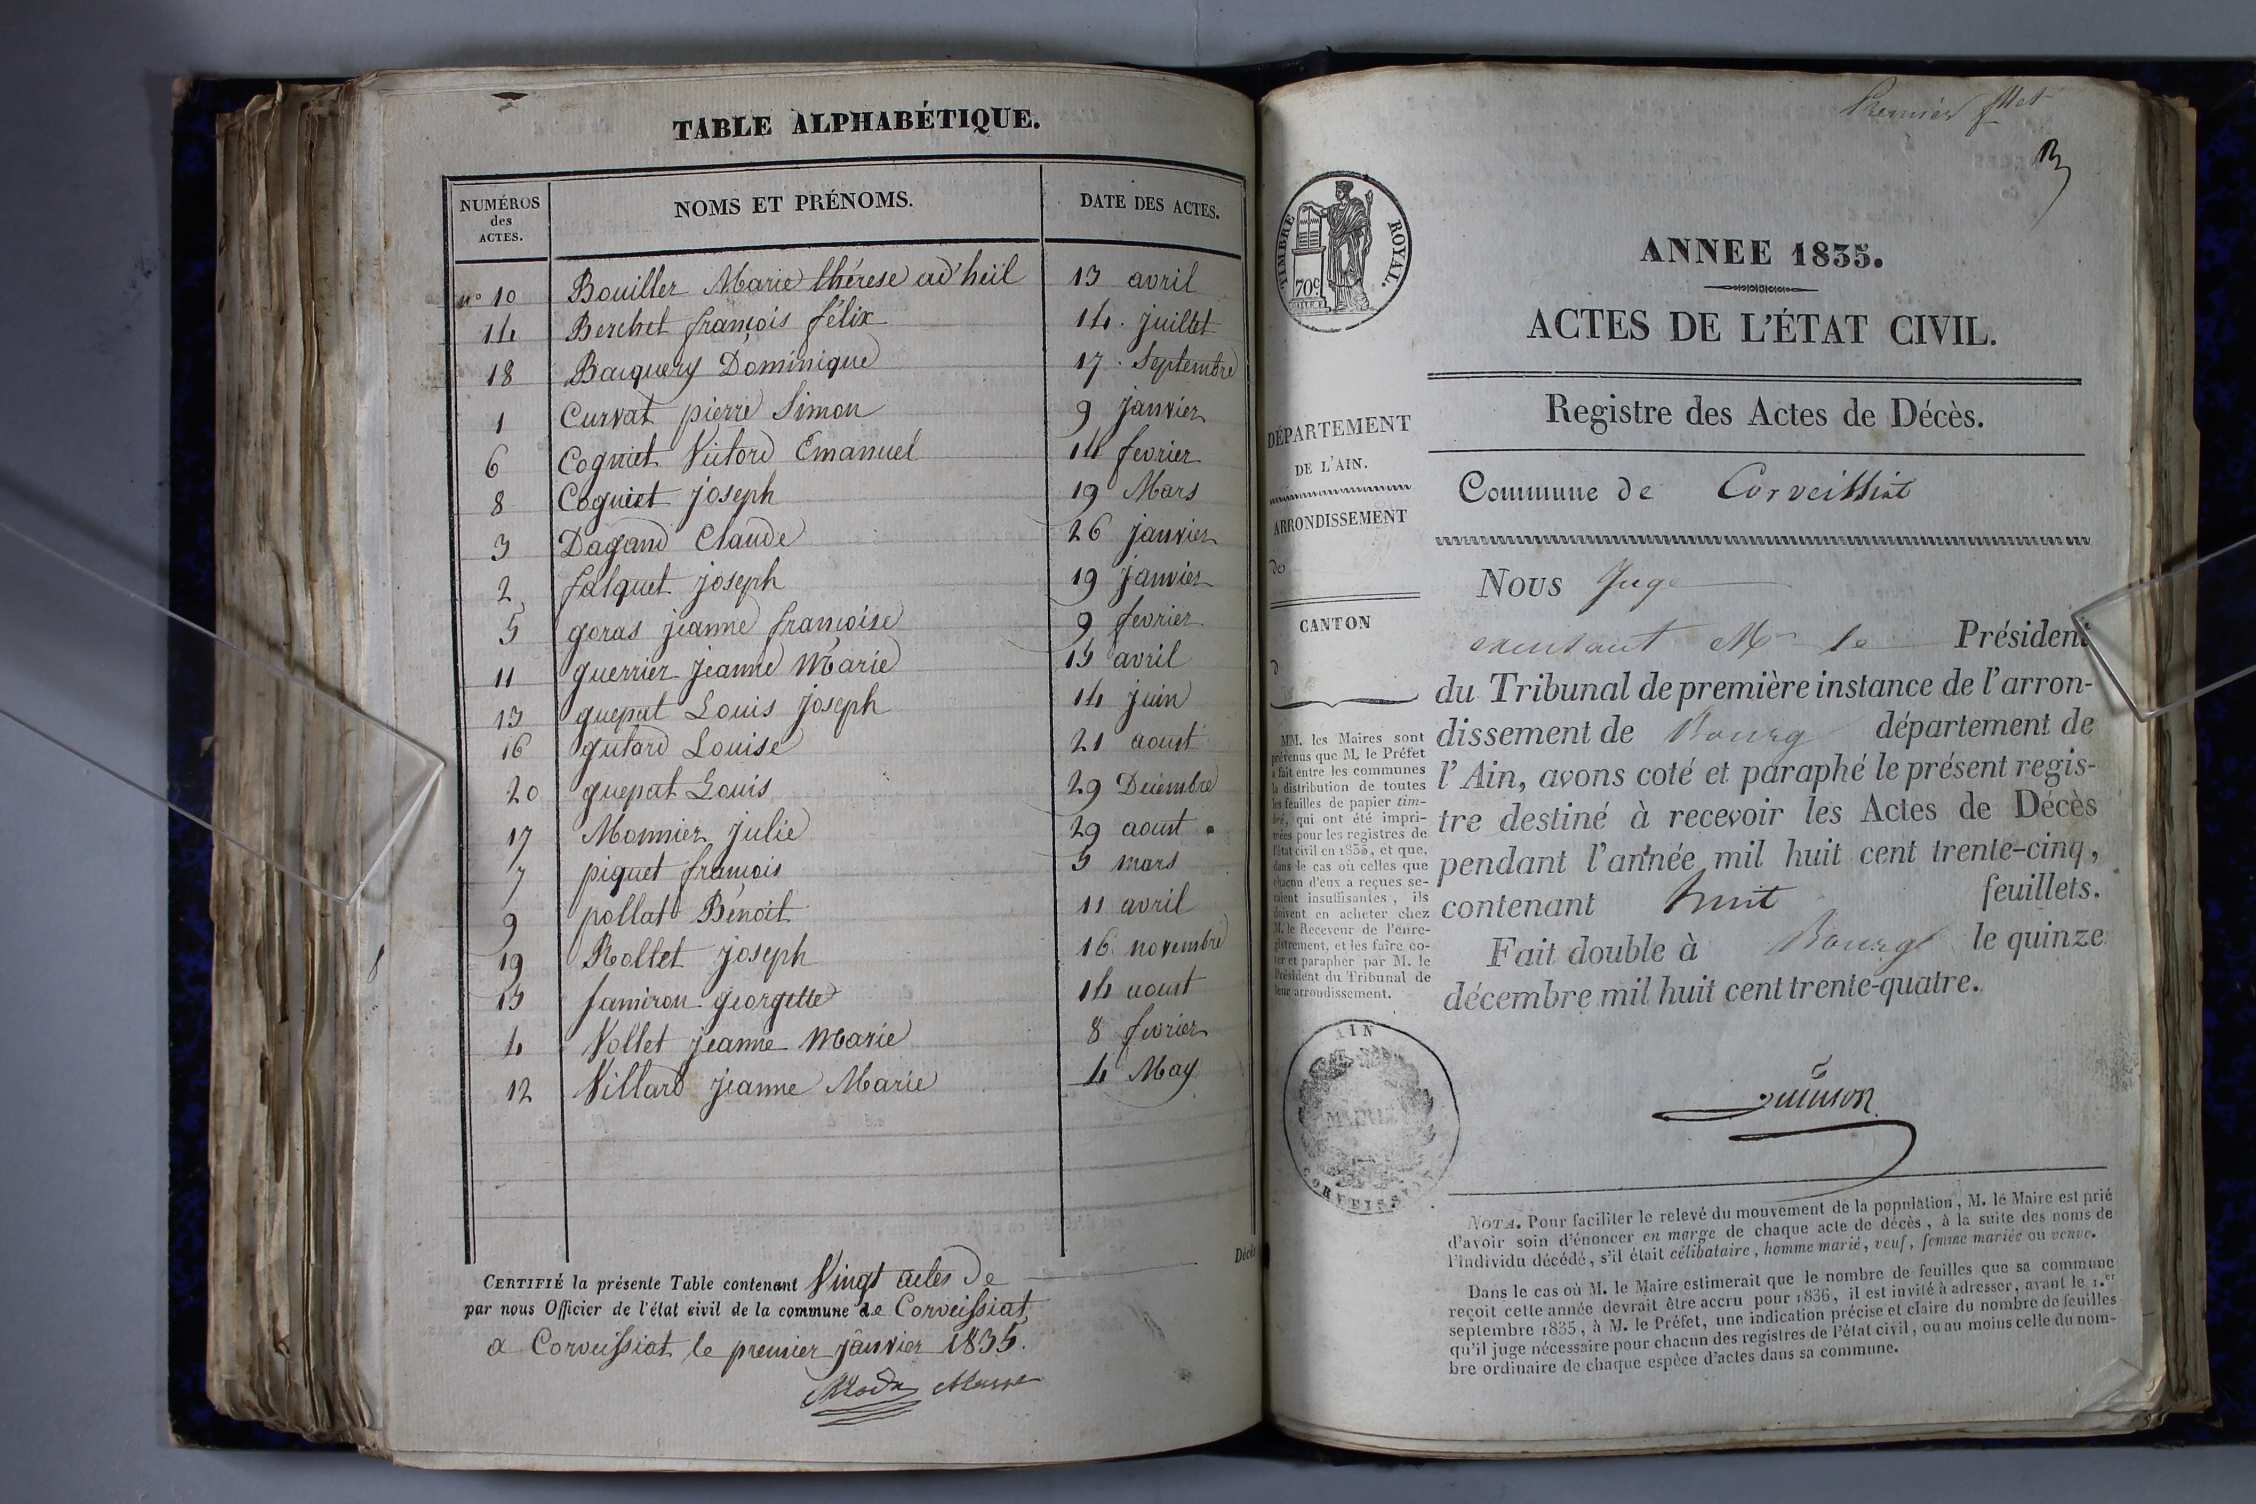 TABLE ALPHABÉTIQUE.
NUMÉROS des ACTES. NOMS ET PRÉNOMS. DATE DES ACTES.
n° 10 Bouiller Marie thérese ad'heïl 13 avril
14 Berchet françois félix 14. juillet
18 Bacquery Dominique 17. Septembre
1 Curvat pierre Simon 9 janvier
6 Cogniet Victord Emanuel 14 fevrier
8 Cogniet joseph 19 Mars
3 Dagand Claude 26 janvier
2 falquet joseph 19 janvier
5 goras jeanne françoise 9 fevrier
11 guerrier jeanne Marie 15 avril
13 guepat Louis joseph 14 juin
16 gutard Louise 21 aoust
20 guepat Louis 29 Décembre
17 Monnier julie 29 aoust
7 piquet francois 5 mars
9 pollat Bénoit 11 avril
19 Rollet joseph 16 novembre
15 famiron georgette 14 aoust
4 Vollet jeanne Marie 8 fevrier
12 Villard jeanne Marie 4 May
Décès
CERTIFIÉ la présente Table contenant Vingt actes de
par nous Officier de l'état civil de la commune de Corveissiat
a Corveissiat le premier janvier 1835.
Premier fllet
TIMBRE ROYAL.
70c
ANNEE 1835.
ACTES DE L'ÉTAT CIVIL.
Registre des Actes de Décès.
Commune de Corveissiat
DÉPARTEMENT
DE L'AIN.
ARRONDISSEMENT
de
CANTON
d
MM. les Maires sont
prévenus que M. le Préfet
a fait entre les communes
la distribution de toutes
les feuilles de papier tim-
bré, qui ont été impri-
mées pour les registres de
l'état civil en 1835, et que,
dans le cas où celles que
chacun d'eux a reçues se-
raient insuffisantes, ils
doivent en acheter chez
M. le Receveur de l'enre-
gistrement, et les faire co-
ter et parapher par M. le
Président du Tribunal de
leur arrondissement.
Nous Juge
exensant Mr le Président
du Tribunal de première instance de l'arron-
dissement de Bourg département de
l'Ain, avons coté et paraphé le présent regis-
tre destiné à recevoir les Actes de Décès
pendant l'année mil huit cent trente-cinq,
contenant huit feuillets.
Fait double à Bourg le quinze
décembre mil huit cent trente-quatre.
AIN
MAIRIE
CORVEISSIAT
NOTA. Pour faciliter le relevé du mouvement de la population, M. le Maire est prié
d'avoir soin d'énoncer en marge de chaque acte de décès, à la suite des noms de
l'individu décédé, s'il était célibataire, homme marié, veuf, femme mariée ou veuve.
Dans le cas où M. le Maire estimerait que le nombre de feuilles que sa commune
reçoit cette année devrait être accru pour 1836, il est invité à adresser, avant le 1.er
septembre 1835, à M. le Préfet, une indication précise et claire du nombre de feuilles
qu'il juge nécessaire pour chacun des registres de l'état civil, ou au moins celle du nom-
bre ordinaire de chaque espèce d'actes dans sa commune.